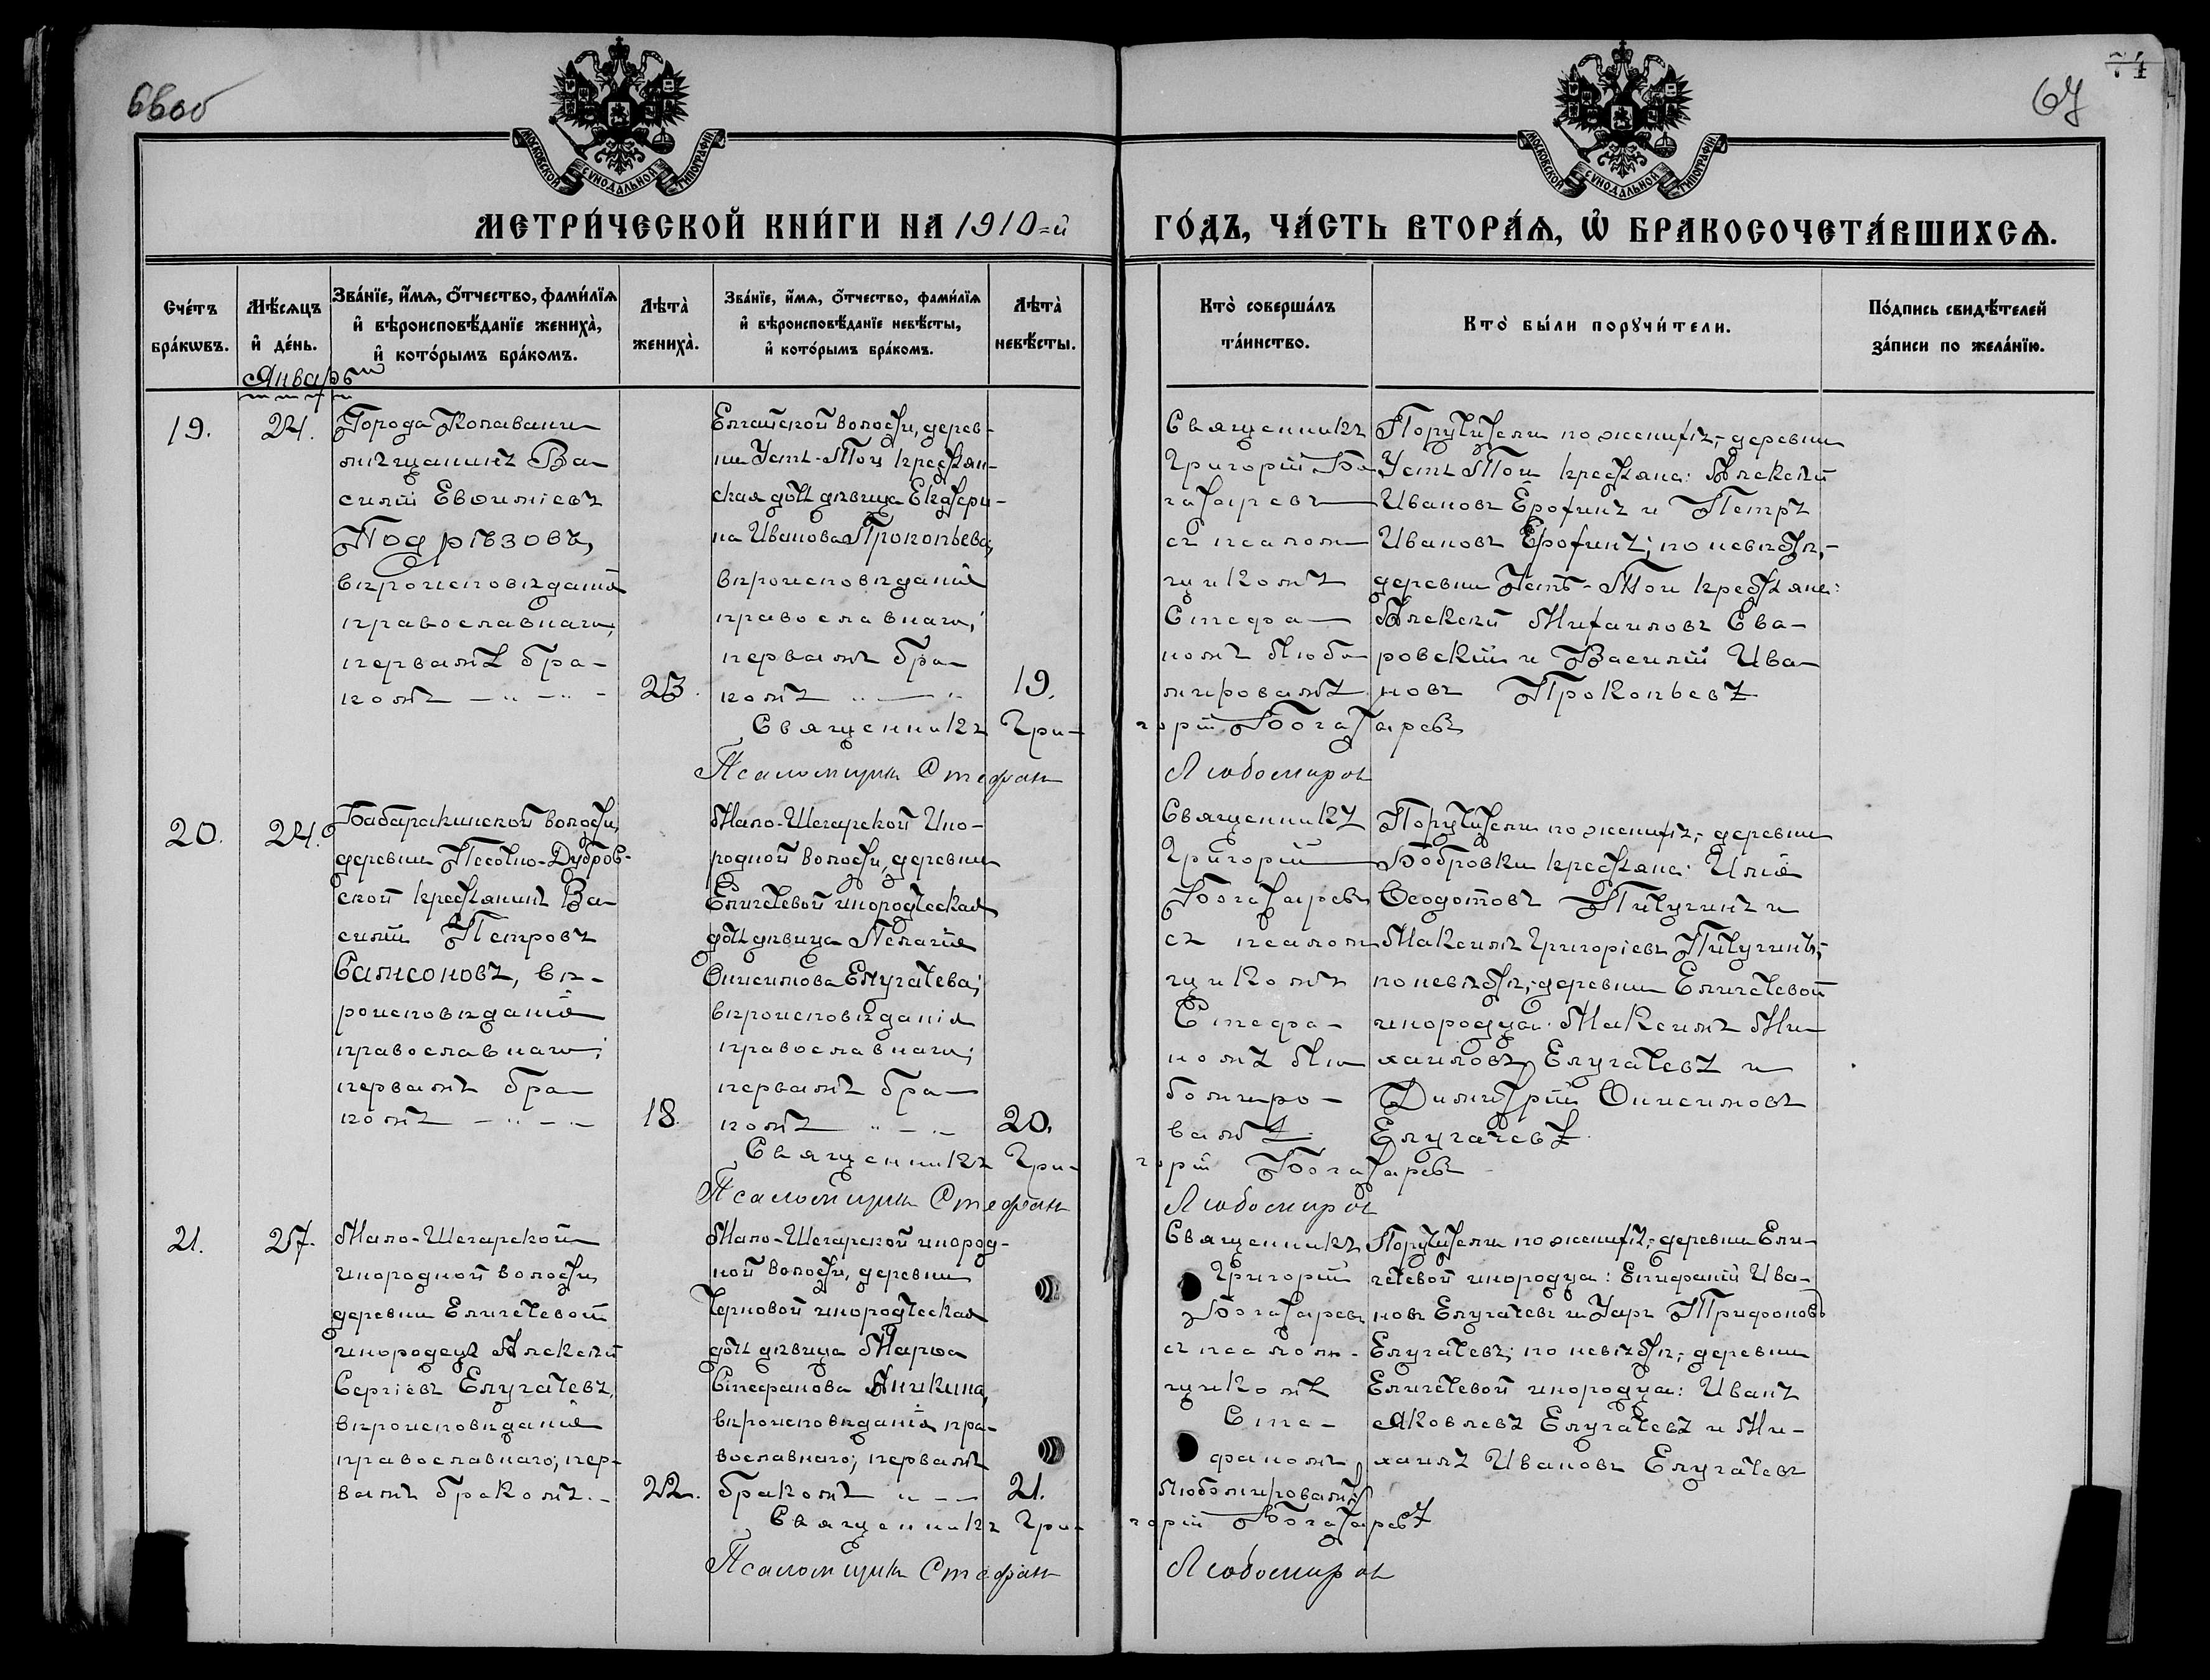 66об
67
74
МОСКОВСКОЙ СѴНОДАЛЬНОЙ ТИПОГРАФІИ
МОСКОВСКОЙ СѴНОДАЛЬНОЙ ТИПОГРАФІИ
МЕТРИ́ЧЕСКОЙ КНИ́ГИ НА 1910=й
ГО́ДЪ, ЧА́СТЬ ВТОРА́Ѧ, Ѡ҆ БРАКОСОЧЕТА́ВШИХСѦ.
Сче́тъ
бра́кѡвъ.
Мѣ́сѧцъ
и҆ де́нь.
Январь
Зва́нїе, и҆́мѧ, ѻ҆́тчество, фами́лїѧ
и҆ вѣроисповѣ́данїе жениха̀,
и҆ кото́рымъ бра́комъ.
Лѣта̀
жениха̀.
Зва́нїе, и҆́мѧ, ѻ҆́тчество, фами́лїѧ
и҆ вѣроисповѣ́данїе невѣ́сты,
и҆ кото́рымъ бра́комъ.
Лѣта̀
невѣ́сты.
Кто̀ соверша́лъ
та́инство.
Кто̀ бы́ли порꙋчи́тели.
По́дпись свидѣ́телей
за́писи по жела́нїю.
19.
24.
Города Колывани
мѣщанинъ Ва-
силій Евѳиміевъ
Подрѣзовъ,
вѣроисповѣданія
православнаго,
первымъ бра-
комъ
23.
Елгайской волости, дерев-
ни Усть-Тои крестьян-
ская дочь дѣвица Екатери-
на Иванова Прокопьева;
вѣроисповѣданія
православнаго;
первымъ бра-
комъ
19.
Священникъ
Григорій Бо-
гатыревъ
съ псалом-
щикомъ
Стефа-
номъ Любо-
мировымъ
Поручители по женихѣ: деревни
Усть Тои крестьяне: Алексѣй
Ивановъ Ерохинъ и Петръ
Ивановъ Ерохинъ; по невѣстѣ:
деревни Усть-Тои крестьяне:
Алексѣй Михаиловъ Сва-
ровскій и Василій Ива-
новъ Прокопьевъ
Священникъ Григорій Богатыревъ
Псаломщикъ Стефанъ Любомировъ
20.
24.
Бабарыкинской волости,
деревни Песочно-Дубров-
ской крестьянинъ Ва-
силій Петровъ
Самсоновъ, вѣ-
роисповѣданія
православнаго;
первымъ бра-
комъ
18.
Мало-Шегарской Ино-
родной волости, деревни
Еличевой инородческая
дочь дѣвица Пелагія
Онисимова Елугачева;
вѣроисповѣданія
православнаго;
первымъ бра-
комъ
20.
Священникъ
Григорій
Богатыревъ
съ псалом-
щикомъ
Стефа-
номъ Лю-
бомиро-
вымъ
Поручители по женихѣ: деревни
Бобровки крестьяне: Илія
Ѳеодотовъ Пичугинъ и
Максимъ Григоріевъ Пичугинъ;
по невѣстѣ: деревни Еличевой
инородцы: Максимъ Ми-
хаиловъ Елугачевъ и
Димитрій Онисимовъ
Елугачевъ
Священникъ Григорій Богатыревъ
Псаломщикъ Стефанъ Любомировъ
21.
27.
Мало-Шегарской
инородной волости
деревни Еличевой
инородецъ Алексѣй
Сергіевъ Елугачевъ,
вѣроисповѣданія
православнаго; пер-
вымъ бракомъ.
22.
Мало-Шегарской инород-
ной волости, деревни
Черновой инородческая
дочь дѣвица Марѳа
Стефанова Аникина,
вѣроисповѣданія пра-
вославнаго; первымъ
бракомъ
21.
Священникъ
Григорій
Богатыревъ
съ псалом-
щикомъ
Сте-
фаномъ
Любомировымъ
Поручители по женихѣ: деревни Ели-
чевой инородцы: Епифаній Ива-
новъ Елугачевъ и Уаръ Трифоновъ
Елугачевъ; по невѣстѣ: деревни
Еличевой инородцы: Иванъ
Яковлевъ Елугачевъ и Ми-
хаилъ Ивановъ Елугачевъ
Священникъ Григорій Богатыревъ
Псаломщикъ Стефанъ Любомировъ